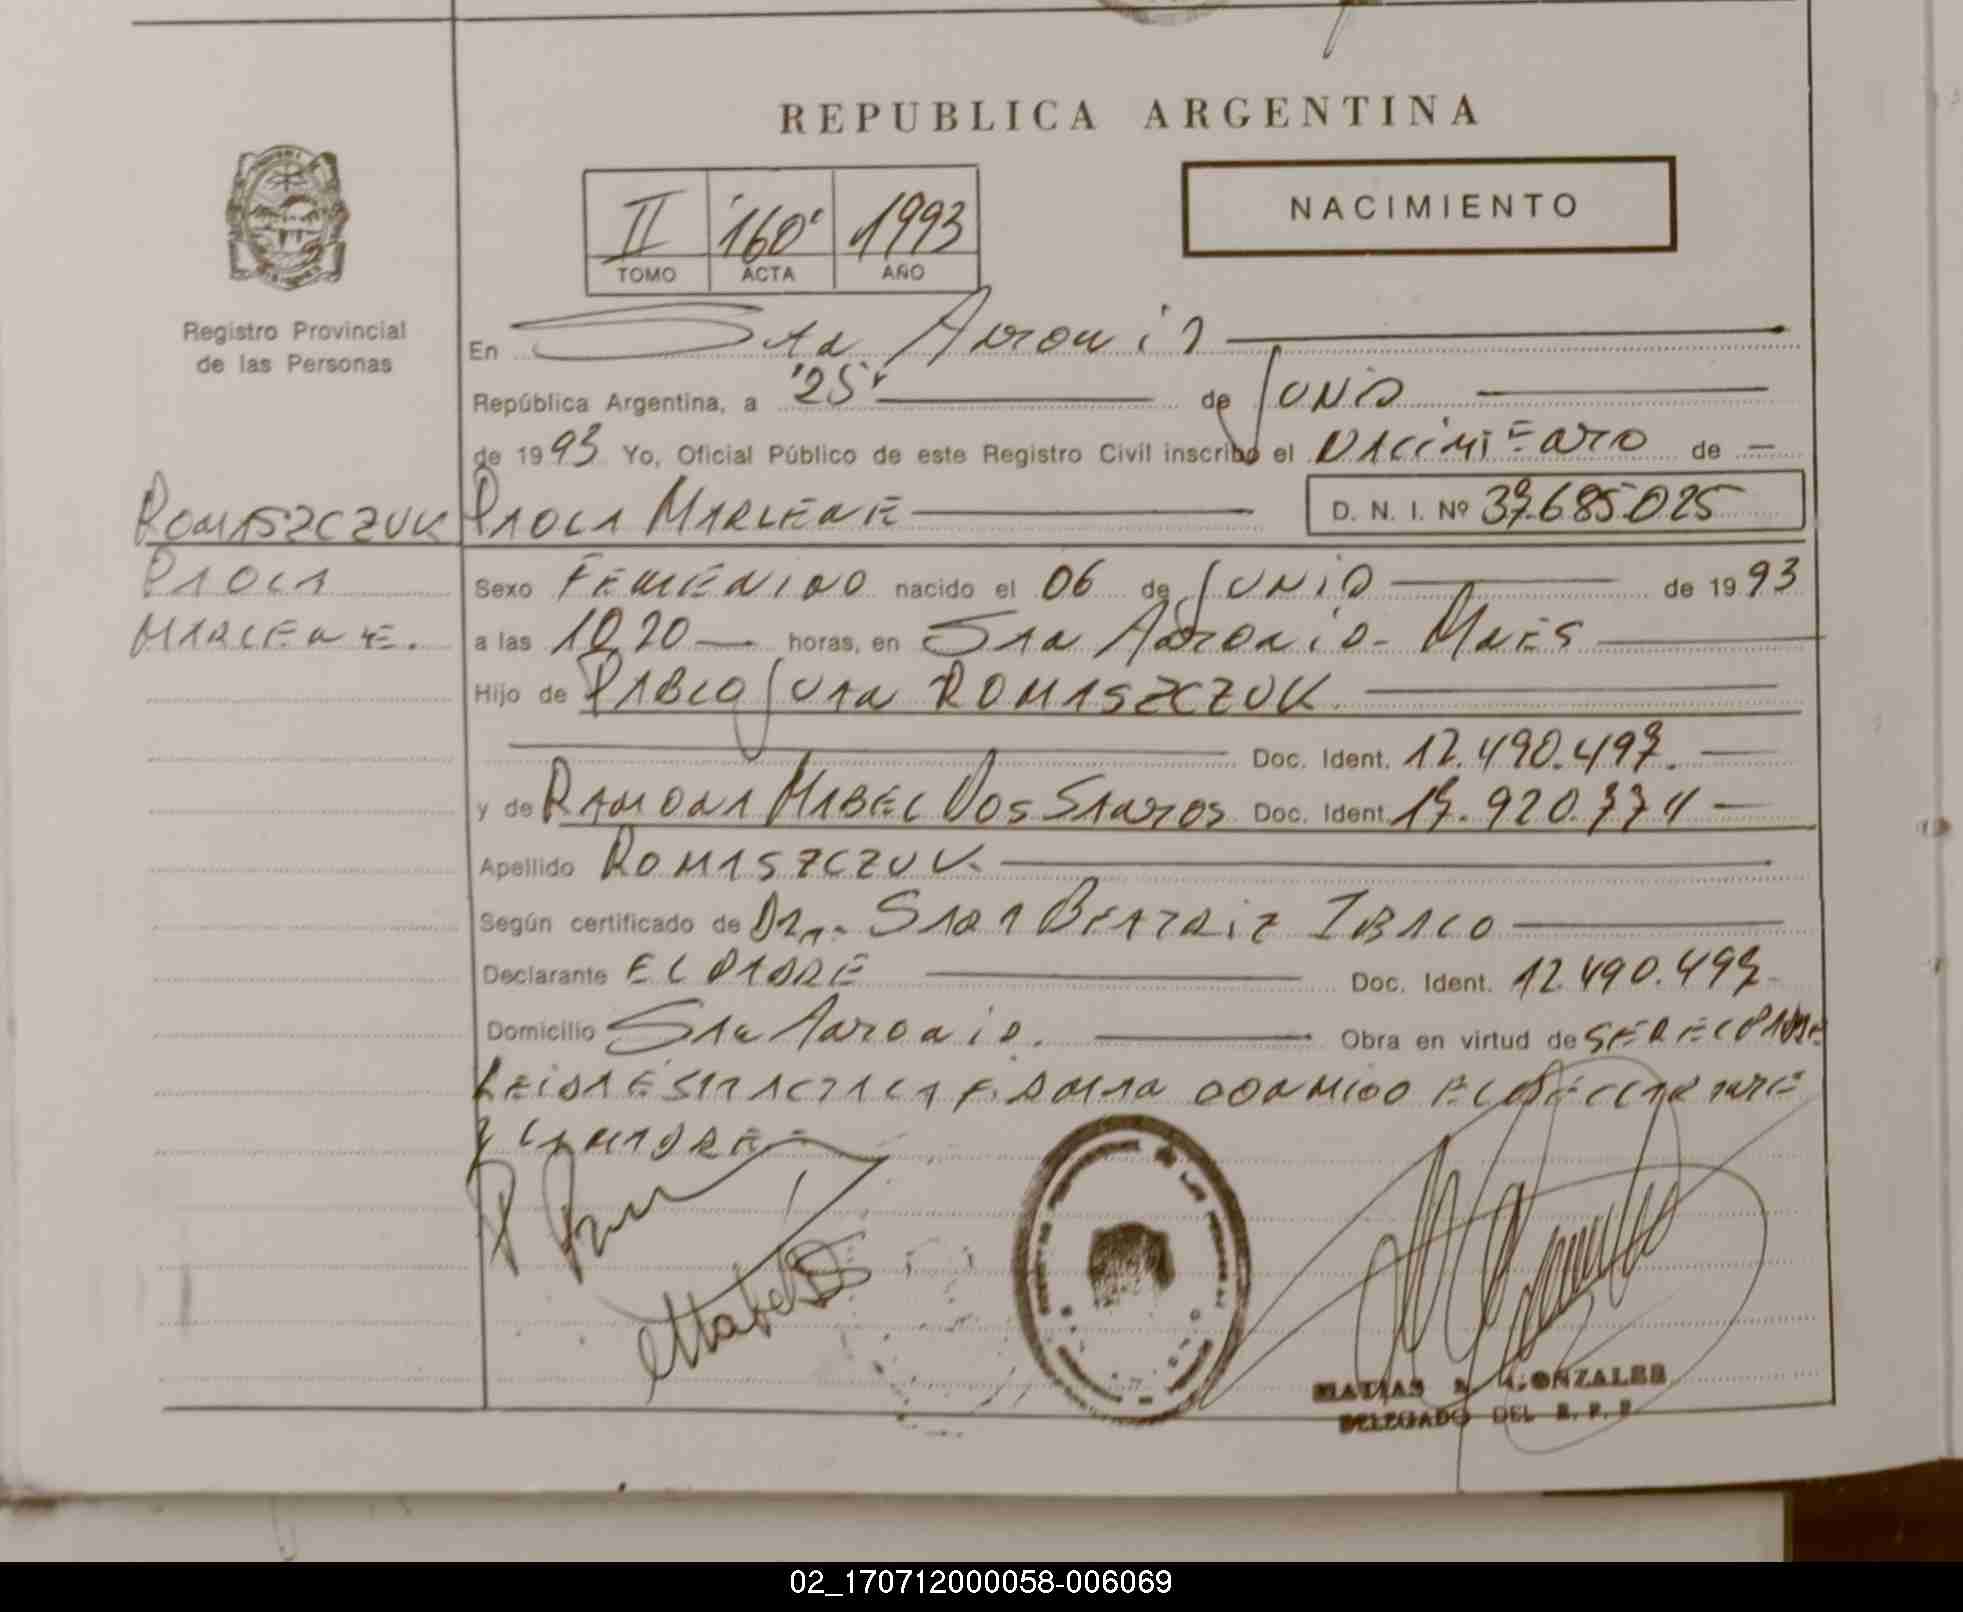 REPUBLICA ARGENTINA
II '160' 1993
TOMO ACTA AÑO
NACIMIENTO
Registro Provincial
de las Personas
En San Antonio
República Argentina, a '25' de JUNIO
de 1993 Yo, Oficial Público de este Registro Civil inscribo el NACIMIENTO de —
ROMASZCZUK PAOLA MARLENE D. N. I. Nº 37.685.025
PAOLA
MARLENE.
Sexo FEMENINO nacido el 06 de JUNIO de 1993
a las 10,20 horas, en SAN ANTONIO - MNES
Hijo de PABLO JUAN ROMASZCZUK
Doc. Ident. 12.490.497.
y de RAMONA MABEL DOS SANTOS Doc. Ident.
Apellido ROMASZCZUK
Según certificado de Dra. SARA BEATRIZ IBALO
Declarante EL PADRE Doc. Ident. 12.490.497
Domicilio SAN ANTONIO. Obra en virtud de SER EL PADRE
LEIDA ESTA ACTA LA FIRMAN CONMIGO EL DECLARANTE
Y LA MADRE
Mabel DS
MATIAS GONZALES
DELEGADO DEL R. P. P
02_170712000058-006069